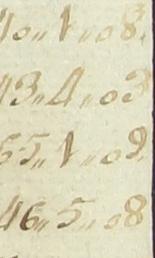 10 „ 1 „ 08.
13 „ 4 „ 03
55 „ 1 „ 09.
46 „ 5 „ 08